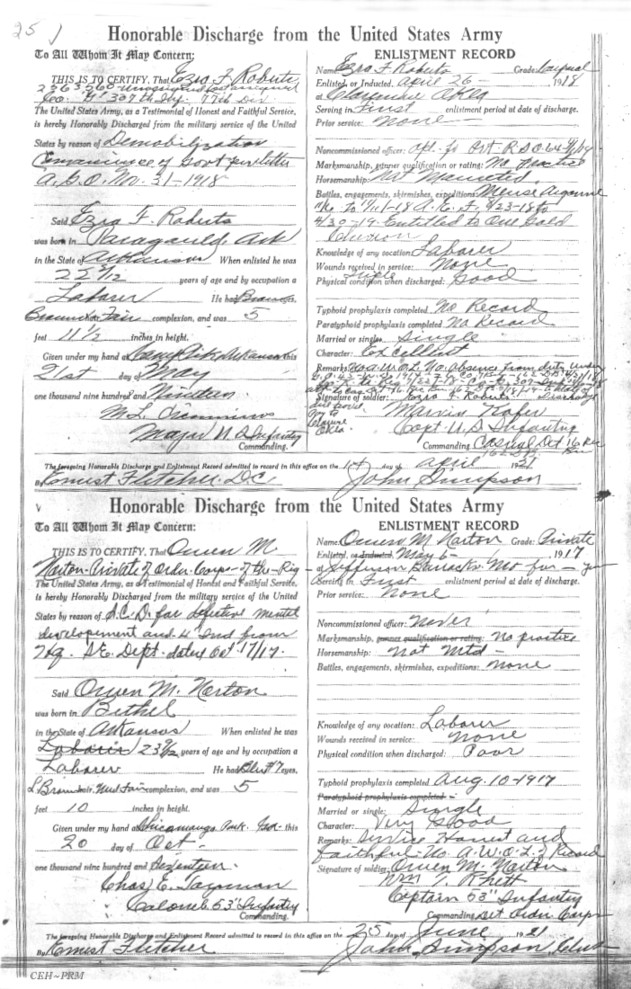 25
Honorable Discharge from the United States Army
To All Whom It May Concern:
THIS IS TO CERTIFY, That Ezra F. Roberts
2263560 unassigned last assigned
Co. "H" 307th Inf. 77th Div.
The United States Army, as a Testimonial of Honest and Faithful Service,
is hereby Honorably Discharged from the military service of the United
States by reason of Demobilization
Convenience of Govt per letter
A.G.O. No. 31-1918
Said Ezra F. Roberts
was born in Paragould, Ark
in the State of Arkansas When enlisted he was
22 5/12 years of age and by occupation a
Laborer He had Brown eyes,
Brown hair Fair complexion, and was 5
feet 11 1/2 inches in height.
Given under my hand at Camp Pike, Arkansas this
21st day of May
one thousand nine hundred and Nineteen
M. L.
Major U S Infantry
Commanding.
ENLISTMENT RECORD
Name: Ezra F. Roberts Grade: Corporal
Enlisted, or Inducted, April 26- 1918
at Okla
Serving in First enlistment period at date of discharge.
Prior service: None
Noncommissioned officer:
Marksmanship, gunner qualification or rating: No practice
Horsemanship: Not Mounted
Battles, engagements, skirmishes, expeditions: Meuse Argonne
to 11/11-18 A. E. F. 6/23-18 to
4/30-19 Entitled to One Gold
Chevron
Knowledge of any vocation: Laborer
Wounds received in service: None
Physical condition when discharged: Good
Single
Typhoid prophylaxis completed No Record
Paratyphoid prophylaxis completed No Record
Married or single: Single
Character: Excellent
Remarks: No A.W.O.L. No absence from duty under
Signature of soldier: Ezra F. Roberts
Marvin
Capt. U.S. Infantry
Commanding Casual Det
The foregoing Honorable Discharge and Enlistment Record admitted to record in this office on the 14 day of April 1921
By Ernest Fletcher D.C. John Simpson
Honorable Discharge from the United States Army
To All Whom It May Concern:
THIS IS TO CERTIFY, That Owen M
Norton Private Order Corps
The United States Army, as a Testimonial of Honest and Faithful Service,
is hereby Honorably Discharged from the military service of the United
States by reason of S.C.D. for defective mental
developement and 4" Ind from
Hq. S.E. Dept. dated Oct 17/17.
Said Owen M. Norton
was born in Bethel
in the State of Arkansas When enlisted he was
Laborer 23 9/12 years of age and by occupation a
Laborer He had Blue #7 eyes,
L Brown hair, Med Fair complexion, and was 5
feet 10 inches in height.
Given under my hand at Chicamauga Park. Geo. this
20 day of Oct-
one thousand nine hundred and Seventeen.
Chas. E. Tayman
Colonel 53" Infantry
Commanding.
ENLISTMENT RECORD
Name: Owen M. Norton Grade: Private
Enlisted, or Inducted, May 6- 1917
at Jefferson Barracks Mo
Serving in First enlistment period at date of discharge.
Prior service: None
Noncommissioned officer: Never
Marksmanship, gunner qualification or rating: No practice
Horsemanship: Not Mtd-
Battles, engagements, skirmishes, expeditions: None
Knowledge of any vocation: Laborer
Wounds received in service: None
Physical condition when discharged: Poor
Typhoid prophylaxis completed Aug. 10-1917
Paratyphoid prophylaxis completed
Married or single: Single
Character: Very Good
Remarks: Service Honest and
faithful- No A.W.O.L. Record
Signature of soldier: Owen M. Norton
Wm T. Rhett
Captain 53" Infantry
Commanding Det Order Corps
The foregoing Honorable Discharge and Enlistment Record admitted to record in this office on the 25 day of June 1921
By Ernest Fletcher John Simpson Clerk
CEH~PRM